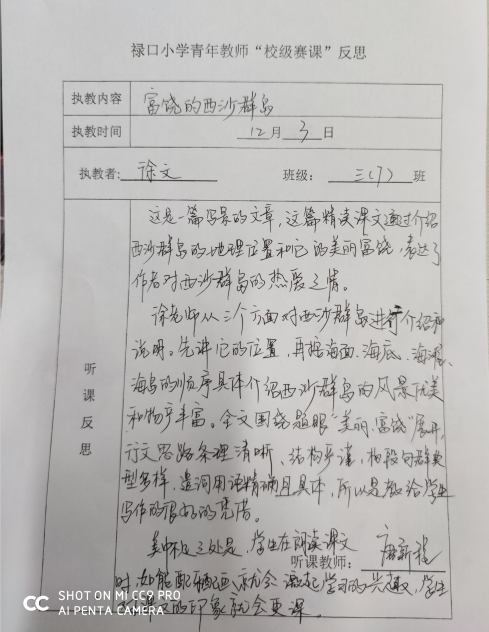 禄口小学青年教师“校级赛课”反思
执教内容 富饶的西沙群岛
执教时间 12月 3 日
执教者: 徐文 班级: 三(7) 班
听课反思
这是一篇写景的文章，这篇精读课文通过介绍
西沙群岛的地理位置和它的美丽富饶，表达了
作者对西沙群岛的热爱之情。
徐老师从三个方面对西沙群岛进行介绍和
说明。先讲它的位置，再按海面、海底、海滩、
海岛的顺序具体介绍西沙群岛的风景优美
和物产丰富。全文围绕题眼“美丽、富饶”展开，
行文思路条理清晰、结构严谨，构段句群类
型多样，遣词用语精确且具体，所以是教给学生
写作的很好的凭借。
美中不足之处是，学生在朗读课文
听课教师:
时，如能配画，就会激起学习的兴趣，学生
课文的印象就会更深。
SHOT ON MI CC9 PRO
AI PENTA CAMERA